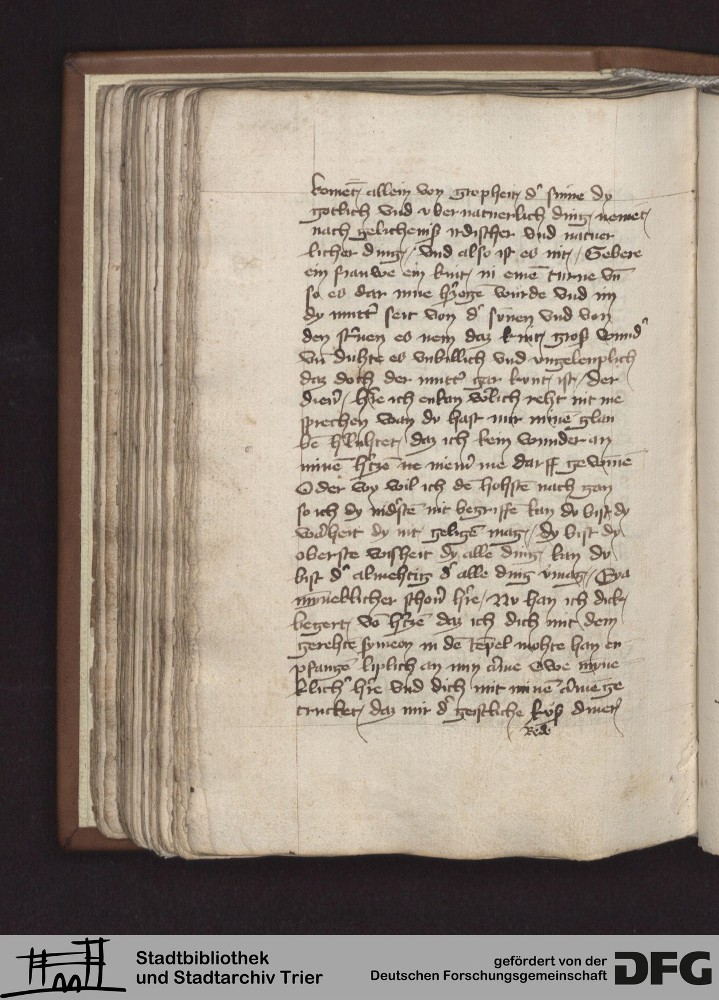 komēt allein von gropheit d' sinne dy
gotlich vnd vbernatuerlich ding nemēt
nach gelichenisß irdischer vnd natuer
licher ding / vnd also ist es nit / Gebere
ein frauwe ein kint in einē turne vn̄
so es dar inne h'zogē würde vnd im
dy mutt' seit von d' sunen vnd von
den st'nen es nem daz kint groß wund'
vn̄ duhte es vnbillich vnd vngelenplich
daz doch der mutt' gar kunt ist / Der
dien' / h're ich enkan w'lich reht nit me
sprechen wan du hast mir minē glau
bē h'luhtet daz ich kein wunder an
minē h'tzē ne niem' me darff gewinnē
Oder wy wil ich dē hohste nach gan
so ich dy nid'stē nit begriffē kan du bist dy
warheit dy nit geligē mag / dy bist dy
oberste wisheit dy alle ding kan du
bist d' almehtig d' alle ding v'mag / Eya
mÿneklicher schon' h're / Nu han ich dick
begert vō h'tzē daz ich dich mit dem
gerehtē symeon in dē tēpel mohte han en
pfangē liplich an min arme Owe mÿne
klich' h're vnd dich mit minē arme ge
trucket daz mir d' geistliche kuß diner
Rede
Stadtbibliothek
und Stadtarchiv Trier
gefördert von der
Deutschen Forschungsgemeinschaft
DFG